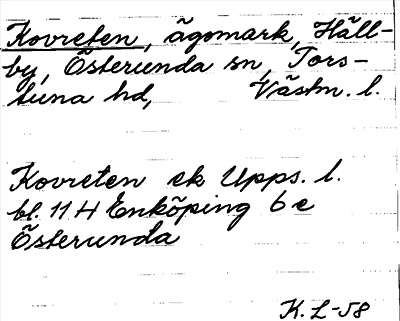 Kovreten, ägomark, Häll-
by, Österunda sn, Tors-
tuna hd, Västm. l.
Kovreten ek Upps. l.
bl. 11 H Enköping 6 e
Österunda
K. L-58